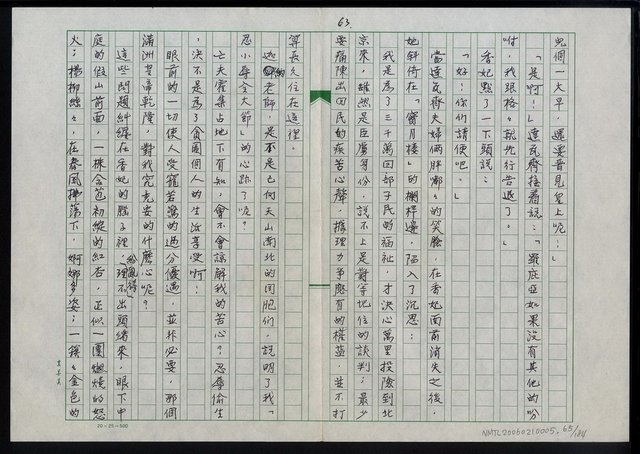 63.
兒個一大早，還要晉見皇上呢！」
「是啊！」達瓦齊接着說：「羅庇亞如果沒有其他的吩
咐，我跟格格就先行告退了。」
香妃點了一下頭說：
「好！你們請便吧。」
當達瓦齊夫婦倆胖嘟嘟的笑臉，在香妃面前消失之後，
她斜倚在「寶月樓」的欄桿邊，陷入了沉思：
我是為了三千萬回部子民的福祉，才決心萬里投險到北
京來，雖然是臣屬身份，說不上是對等地位的談判；最少
要痛陳出回民的疾苦心聲，據理力爭應有的權益，並不打
算長久住在這裡。
迦納老師，是不是已向天山南北的回胞們，說明了我「
忍小辱全大節」的心跡了呢？
亡夫霍集占地下有知，會不會諒解我的苦心？忍辱偷生
，決不是為了貪圖個人的生活享受啊！
眼前的一切使人受寵若驚的過分優遇，並非必要，那個
滿洲皇帝乾隆，對我究竟安的什麼心呢？
這些問題糾纏在香妃的腦子裡，理不出頭緒來，眼下中
庭的假山前面，一棵含苞初綻的紅杏，正似一團燃燒的怒
火；楊柳絲絲，在春風拂蕩下，婀娜多姿；一簇簇金色的
20×25=500
NMTL20050210005.65/181